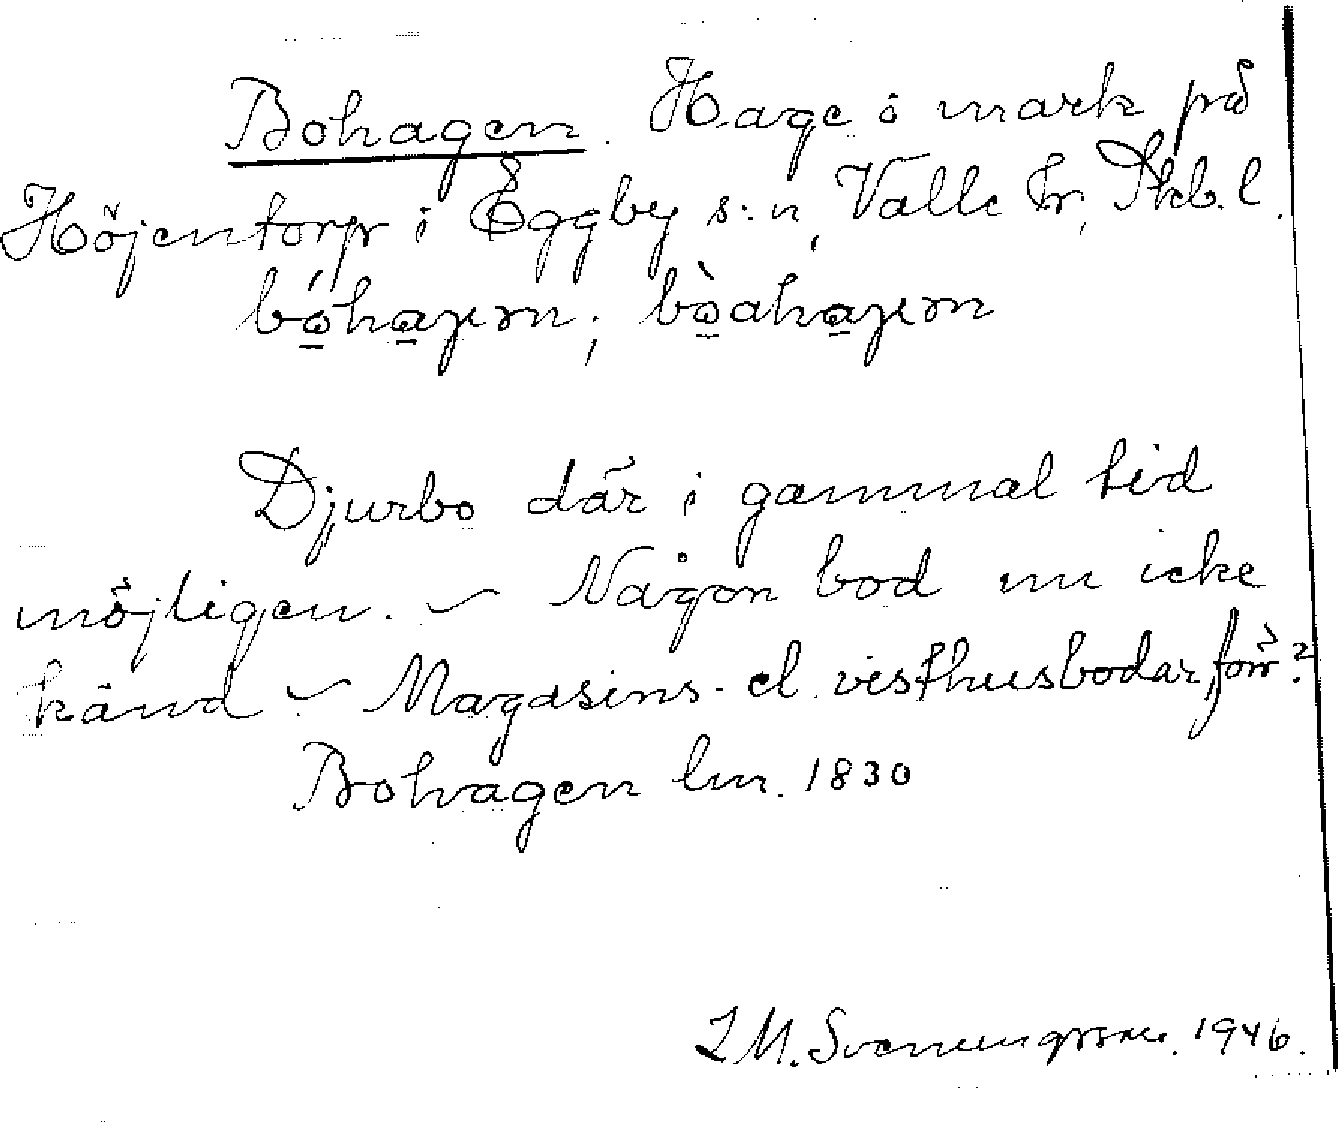 Bohagen. Hage o mark på
Höjentorp i Eggby s:n, Valle hr, Skb. l.
bóhagen; bòahagen
Djurbo där i gammal tid
möjligen. – Någon bod nu icke
känd – Magasins- el. visthusbodar, förr?
Bohagen lm. 1830
1946.